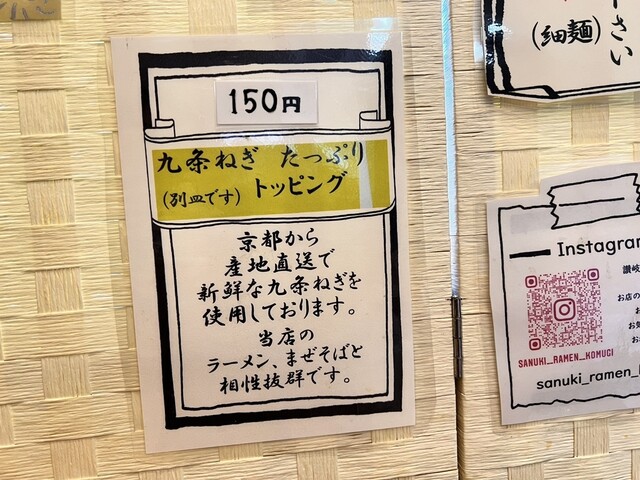 150円
九条ねぎ たっぷり
(別皿です) トッピング
京都から
産地直送で
新鮮な九条ねぎを
使用しております。
当店の
ラーメン、まぜそばと
相性抜群です。
さい
(細麺)
Instagram
讃岐
お店の
SANUKI_RAMEN_KOMUGI
sanuki_ramen_